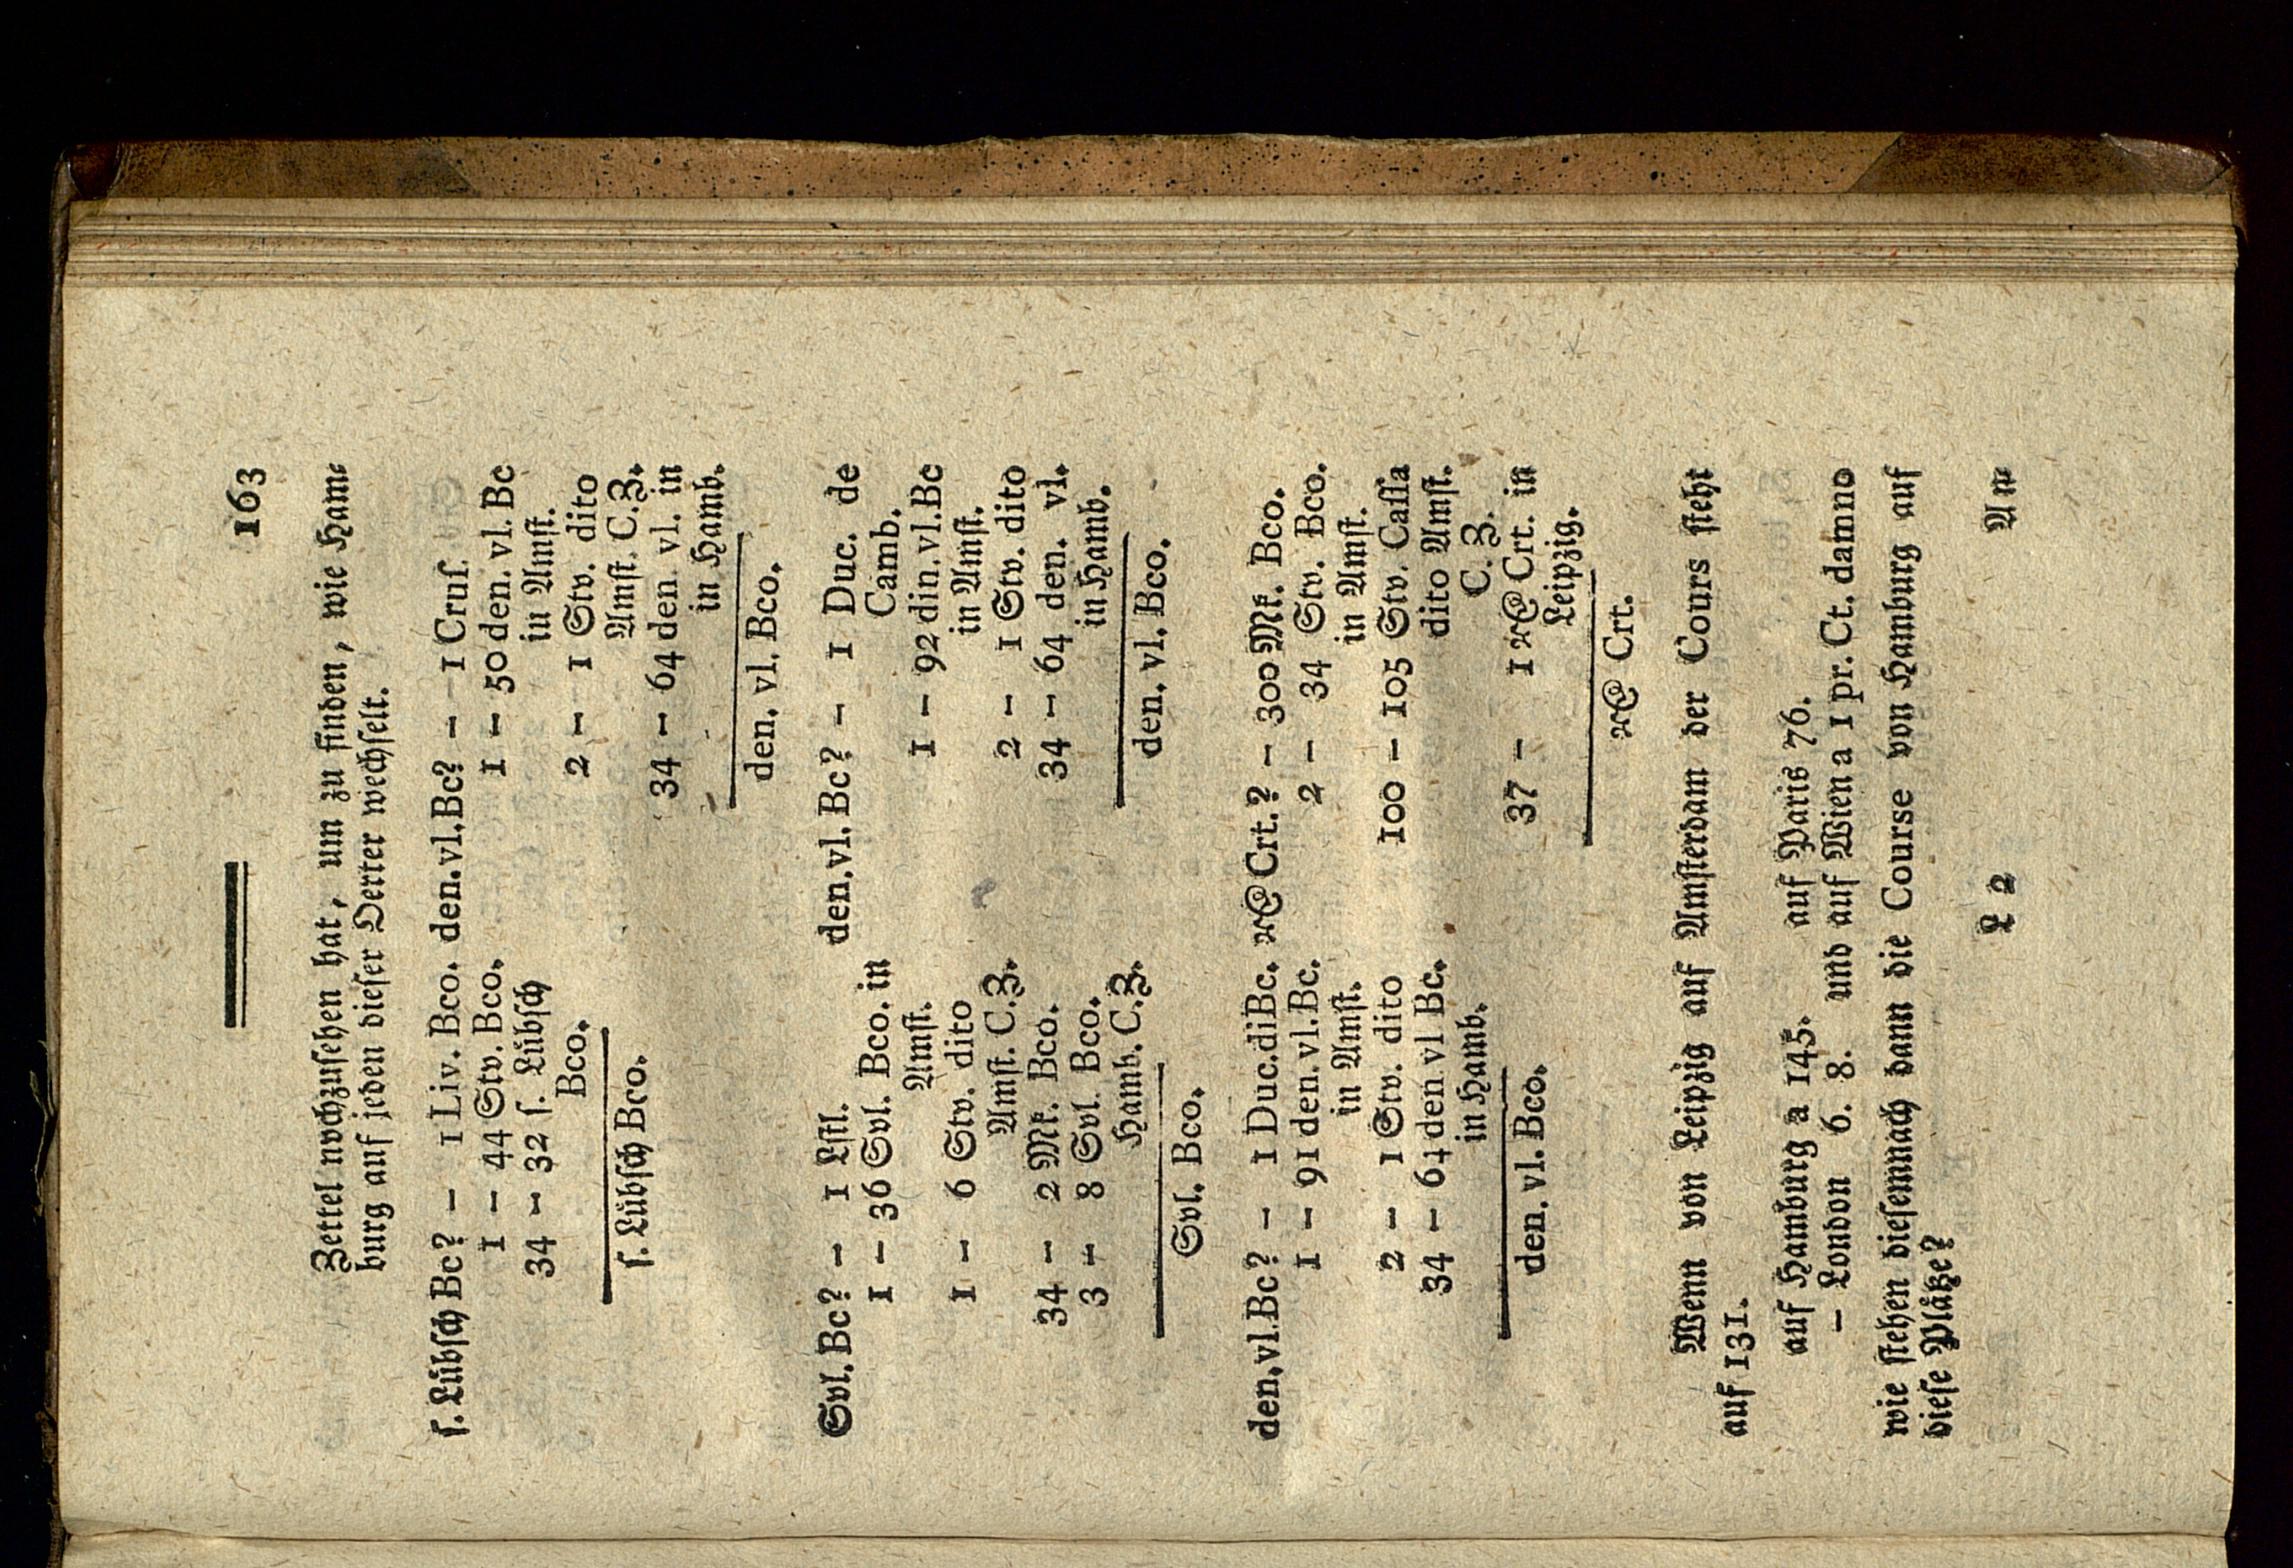 163
Zettel nochzusehen hat, um zu finden, wie Ham-
burg auf jeden dieser Oerter wechselt.
ſ. Lübſch Bc? — 1 Liv. Bco.
1 — 44 Stv. Bco.
34 — 32 ſ. Lübſch
Bco.
ſ. Lübſch Bco.
den. vl. Bc? — 1 Cruſ.
1 — 50 den. vl. Bc
in Amſt.
2 — 1 Stv. dito
Amſt. C. Z.
34 — 64 den. vl. in
in Hamb.
den. vl. Bco.
Svl. Bc? — 1 Lſtl.
1 — 36 Svl. Bco. in
Amſt.
1 — 6 Stv. dito
Amſt. C. Z.
34 — 2 Mk. Bco.
3 — 8 Svl. Bco.
Hamb. C. Z.
Svl. Bco.
den. vl. Bc? — 1 Duc. de
Camb.
1 — 92 din. vl. Bc
in Amſt.
2 — 1 Stv. dito
34 — 64 den. vl.
in Hamb.
den. vl. Bco.
den. vl. Bc? — 1 Duc. di Bc.
1 — 91 den. vl. Bc.
in Amſt.
2 — 1 Stv. dito
34 — 64 den. vl Bc.
in Hamb.
den. vl. Bco.
Crt.? — 300 Mk. Bco.
2 — 34 Stv. Bco.
in Amſt.
100 — 105 Stv. Caſſa
dito Amſt.
C. Z.
37 — 1 Crt. in
Leipzig.
Crt.
Wenn von Leipzig auf Amſterdam der Cours ſteht
auf 131.
auf Hamburg a 145. auf Paris 76.
— London 6. 8. und auf Wien a 1 pr. Ct. damno
wie ſtehen dieſemnach dann die Course von Hamburg auf
dieſe Plåtze?
L 2 An